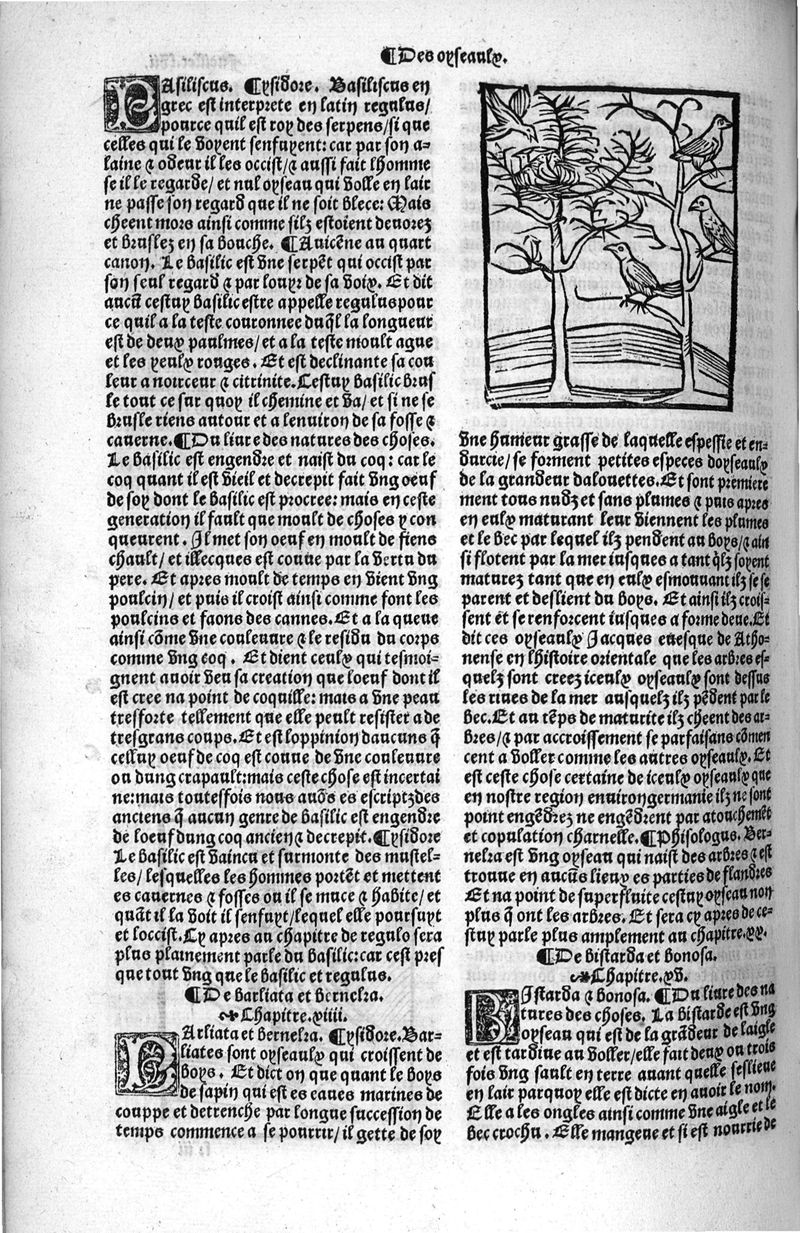 ¶Des oyseaulx.
BAsiliscus. ¶Ysidore. Basiliscus en
grec est interprete en latin regulus/
pource quil est roy des serpens/si que
celles qui le voyent senfuyent: car par son a-
laine ⁊ odeur il les occist/⁊ aussi fait lhomme
se il le regarde/ et nul oyseau qui volle en lair
ne passe son regard que il ne soit blece: Mais
cheent mors ainsi comme silz estoient devorez
et bruslez en sa bouche. ¶Avicēne au quart
canon. Le basilic est vne serpēt qui occist par
son seul regard ⁊ par louyr de sa voix. Et dit
aucū cestuy basilic estre appelle regulus pour
ce quil a la teste couronnee duq̄l la longueur
est de deux paulmes/ et a la teste moult ague
et les yeulx rouges. Et est declinante sa cou
leur a noirceur ⁊ citrinite. Cestuy basilic brus
le tout ce sur quoy il chemine et va/ et si ne se
brusle riens autour et a lenuiron de sa fosse ⁊
cauerne. ¶Du liure des natures des choses.
Le basilic est engendre et naist du coq: car le
coq quant il est vieil et decrepit fait vng oeuf
de soy dont le basilic est procree: mais en ceste
generation il fault que moult de choses y con
queurent. Il met son oeuf en moult de fiens
chault/ et illecques est couue par la vertu du
pere. Et apres moult de temps en vient vng
poulcin/ et puis il croist ainsi comme font les
poulcins et faons des cannes. Et a la queue
ainsi cōme vne couleuure ⁊ le residu du corps
comme vng coq. Et dient ceulx qui tesmoi-
gnent auoir veu sa creation que loeuf dont il
est cree na point de coquille: mais a vne peau
tresforte tellement que elle peult resister a de
tresgrans coups. Et est loppinion daucuns q̄
celluy oeuf de coq est couue de vne couleuure
ou dung crapault: mais ceste chose est incertai
ne: mais toutesfois nous auōs es escriptz des
anciens q̄ aucun genre de basilic est engendre
de loeuf dung coq ancien ⁊ decrepit. ¶Ysidore
Le basilic est vaincu et surmonte des mustel-
les/ lesquelles les hommes portēt et mettent
es cauernes ⁊ fosses ou il se muce ⁊ habite/ et
quāt il la voit il senfuyt/ lequel elle poursuyt
et loccist. Cy apres au chapitre de regulo sera
plus plainement parle du basilic: car cest pres
que tout vng que le basilic et regulus.
¶De barliata et bernekra.
Chapitre. xiiii.
BArliata et bernekra. ¶Ysidore. Bar-
liates sont oyseaulx qui croissent de
boys. Et dict on que quant le boys
de sapin qui est es eaues marines de
couppe et detrenche par longue succession de
temps commence a se pourrir/ il gette de soy
vne humeur grasse de laquelle espessie et en-
durcie/ se forment petites especes doyseaulx
de la grandeur dalouettes. Et sont premiere
ment tous nudz et sans plumes ⁊ puis apres
en eulx maturant leur viennent les plumes
et le bec par lequel ilz pendent au boys/ ⁊ ain
si flotent par la mer iusques a tant q̄lz soyent
maturez tant que en eulx esmouuant ilz se se
parent et deslient du boys. Et ainsi ilz crois-
sent et se renforcent iusques a forme deue. Et
dit ces oyseaulx Jacques euesque de Atho-
nense en lhistoire orientale que les arbres es-
quelz sont creez iceulx oyseaulx sont dessus
les riues de la mer ausquelz ilz pēdent par le
bec. Et au tēps de maturite ilz cheent des ar-
bres/ ⁊ par accroissement se parfaisans cōmen
cent a voller comme les autres oyseaulx. Et
est ceste chose certaine de iceulx oyseaulx que
en nostre region enuiron germanie ilz ne sont
point engēdrez ne engēdrent par atouchemēt
et copulation charnelle. ¶Phisologus. Ber-
nekra est vng oyseau qui naist des arbres ⁊ est
trouue en aucūs lieux es parties de flandres
Et na point de superfluite cestuy oyseau non
plus q̄ ont les arbres. Et sera cy apres de ce-
stuy parle plus amplement au chapitre. xx.
¶De bistarda et bonosa.
Chapitre. xv.
BIstarda ⁊ bonosa. ¶Du liure des na
tures des choses. La bistarde est vng
oyseau qui est de la grādeur de laigle
et est tardiue au voller/ elle fait deux ou trois
fois vng sault en terre auant quelle seslieue
en lair parquoy elle est dicte en auoir le nom.
Elle a les ongles ainsi comme vne aigle et le
bec crochu. Elle mangeue et si est nourrie de